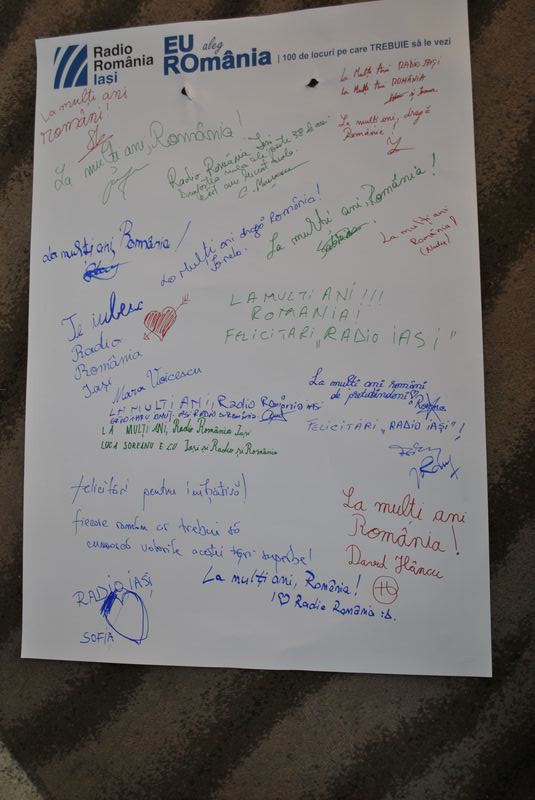 Radio
România
Iași
EU aleg
ROmânia
| 100 de locuri pe care TREBUIE să le vezi
La mulți ani
români!
La Mulți Ani RADIO IAȘI
La Mulți Ani ROMÂNIA
La mulți ani, dragă
România!
La mulți ani, România!
Radio România Iași
La mulți ani, România!
La Mulți ani dragă România!
Ionela.
La mulți ani, România!
La mulți ani
România!
(Nadia)
Te iubesc
Radio
România
Iași
Mara Voicescu
LA MULTI ANI!!!
ROMANIA!
FELICITARI „RADIO IASI"
LA MULȚI ANI, Radio România Iași
LA MULȚI ANI, Radio România Iași
LUCA SOREANU E CU Iași și Radio și România
La multi ani români
de pretutindeni!
FELICITĂRI „RADIO IAȘI"!
felicitări pentru inițiativă!
fiecare român ar trebui să
cunoască valorile acestei țări superbe!
La mulți ani
România!
David Hâncu
La mulți ani, România!
I ♡ Radio România :b.
RADIO IAȘI
SOFIA